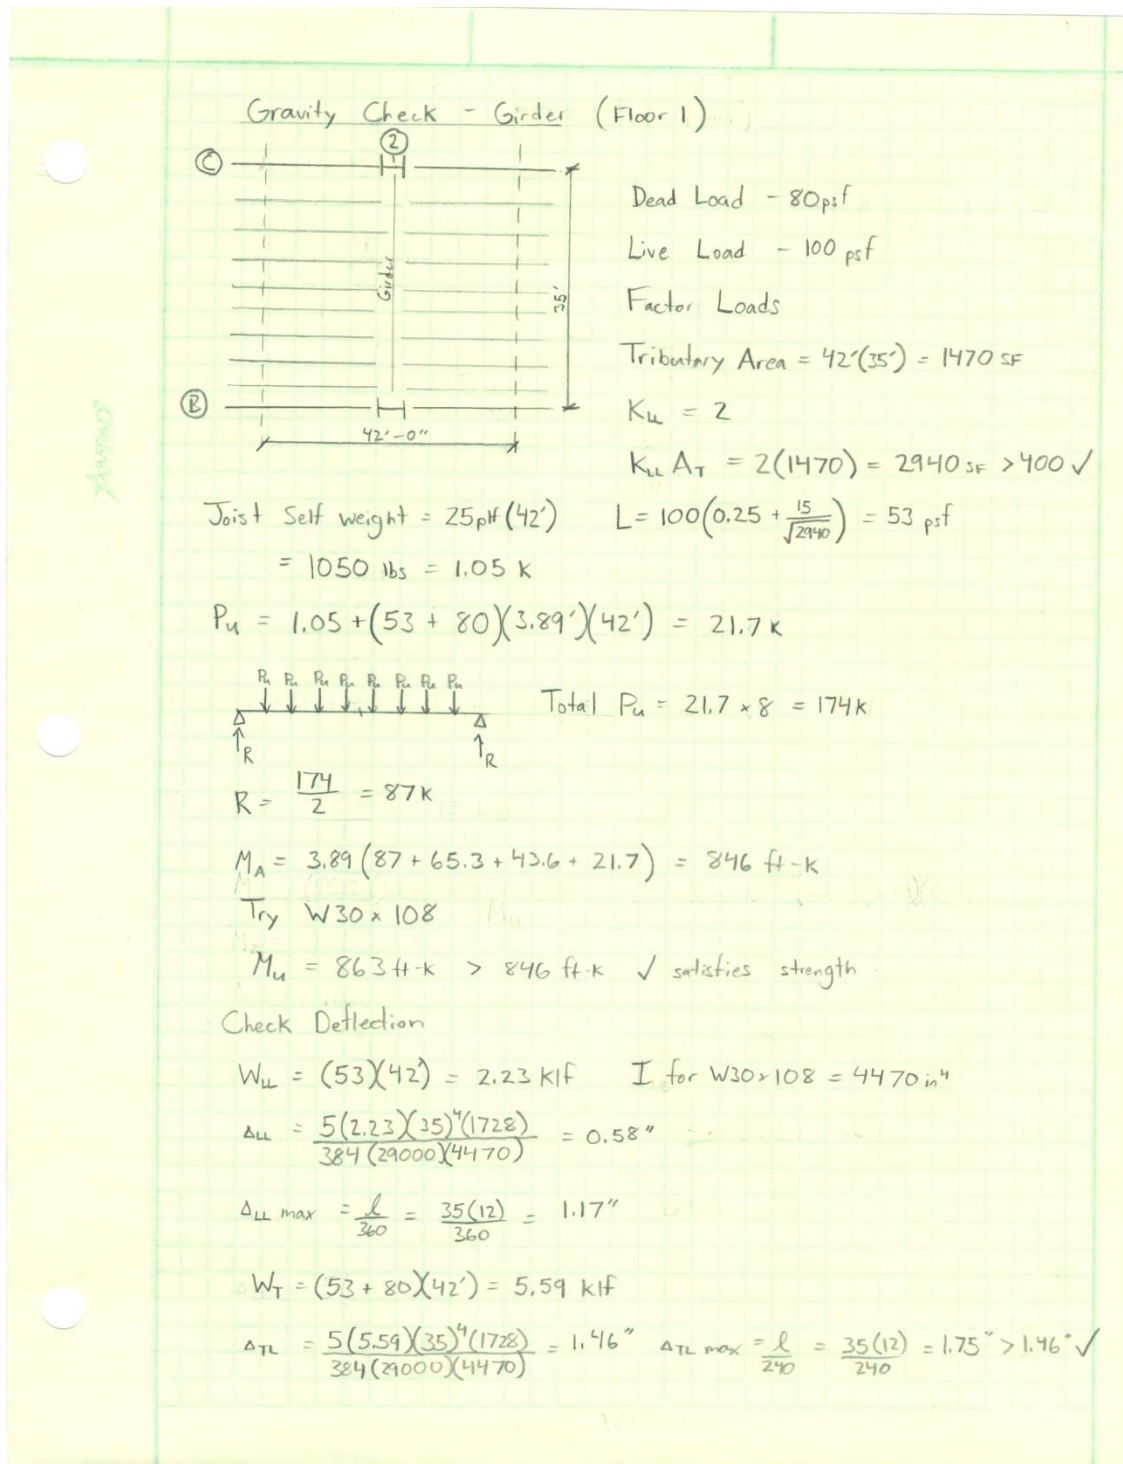 Gravity Check - Girder (Floor 1)
2
C
Dead Load - 80psf
Live Load - 100 psf
Girder
35'
Factor Loads
Tributary Area = 42'(35') = 1470 SF
B
K_LL = 2
42'-0"
K_LL A_T = 2(1470) = 2940 SF >400 ✓
Joist Self weight = 25plf(42')
L = 100(0.25 + 15/√2940) = 53 psf
= 1050 lbs = 1.05 K
Pu = 1.05 + (53 + 80)(3.89')(42') = 21.7 K
Pu Pu Pu Pu Pu Pu Pu Pu
Total Pu = 21.7 × 8 = 174K
R R
R = 174/2 = 87K
M_A = 3.89 (87 + 65.3 + 43.6 + 21.7) = 846 ft-K
Try W30 × 108
Mu = 863 ft-K > 846 ft-K ✓ satisfies strength
Check Deflection
W_LL = (53)(42') = 2.23 Klf I for W30×108 = 4470 in⁴
Δ_LL = 5(2.23)(35)⁴(1728)/384(29000)(4470) = 0.58"
Δ_LL max = l/360 = 35(12)/360 = 1.17"
W_T = (53 + 80)(42') = 5.59 Klf
Δ_TL = 5(5.59)(35)⁴(1728)/384(29000)(4470) = 1.46" Δ_TL max = l/240 = 35(12)/240 = 1.75" > 1.46" ✓